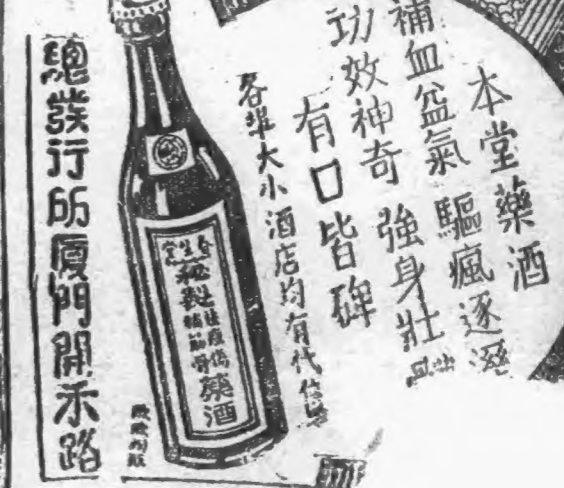 本堂藥酒
補血益氣 驅瘋逐濕
功效神奇 強身壯
有口皆碑
各埠大小酒店均有代售
生堂
秘製
補筋骨
藥酒
總發行所廈門開禾路